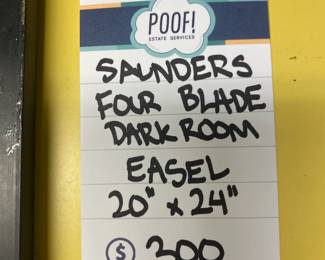 POOF!
ESTATE SERVICES
SAUNDERS
FOUR BLADE
DARK ROOM
EASEL
20" x 24"
$ 300